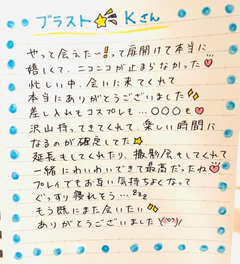 ブラスト Kさん
やっと会えたー!って扉開けて本当に
嬉しくて、ニコニコが止まらなかった
忙しい中、会いに来てくれて
本当にありがとうございました
差し入れもコスプレも...○○○も
沢山持ってきてくれて、楽しい時間に
なるのが確定してた
延長もしてくれたり、撮影会もしてくれて
一緒にわいわいできて最高だったね
プレイでもお互い気持ちよくなって
ぐっすり寝れそう...zzz
もう既にまた会いたい
ありがとうございました